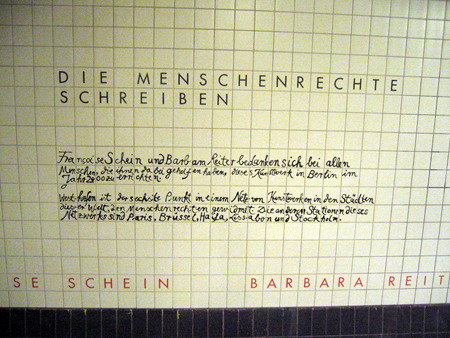 DIE MENSCHENRECHTE
SCHREIBEN
Françoise Schein und Barbara Reiter bedanken sich bei allen
Menschen, die ihnen dabei geholfen haben, dieses Kunstwerk in Berlin im
Jahr 2000 zu errichten.
Westhafen ist der sechste Punkt in einem Netz von Kunstwerken in den Städten
dieser Welt, den Menschenrechten gewidmet. Die anderen Stationen dieses
Netzwerks sind Paris, Brüssel, Haifa, Lissabon und Stockholm.
SE SCHEIN BARBARA REIT